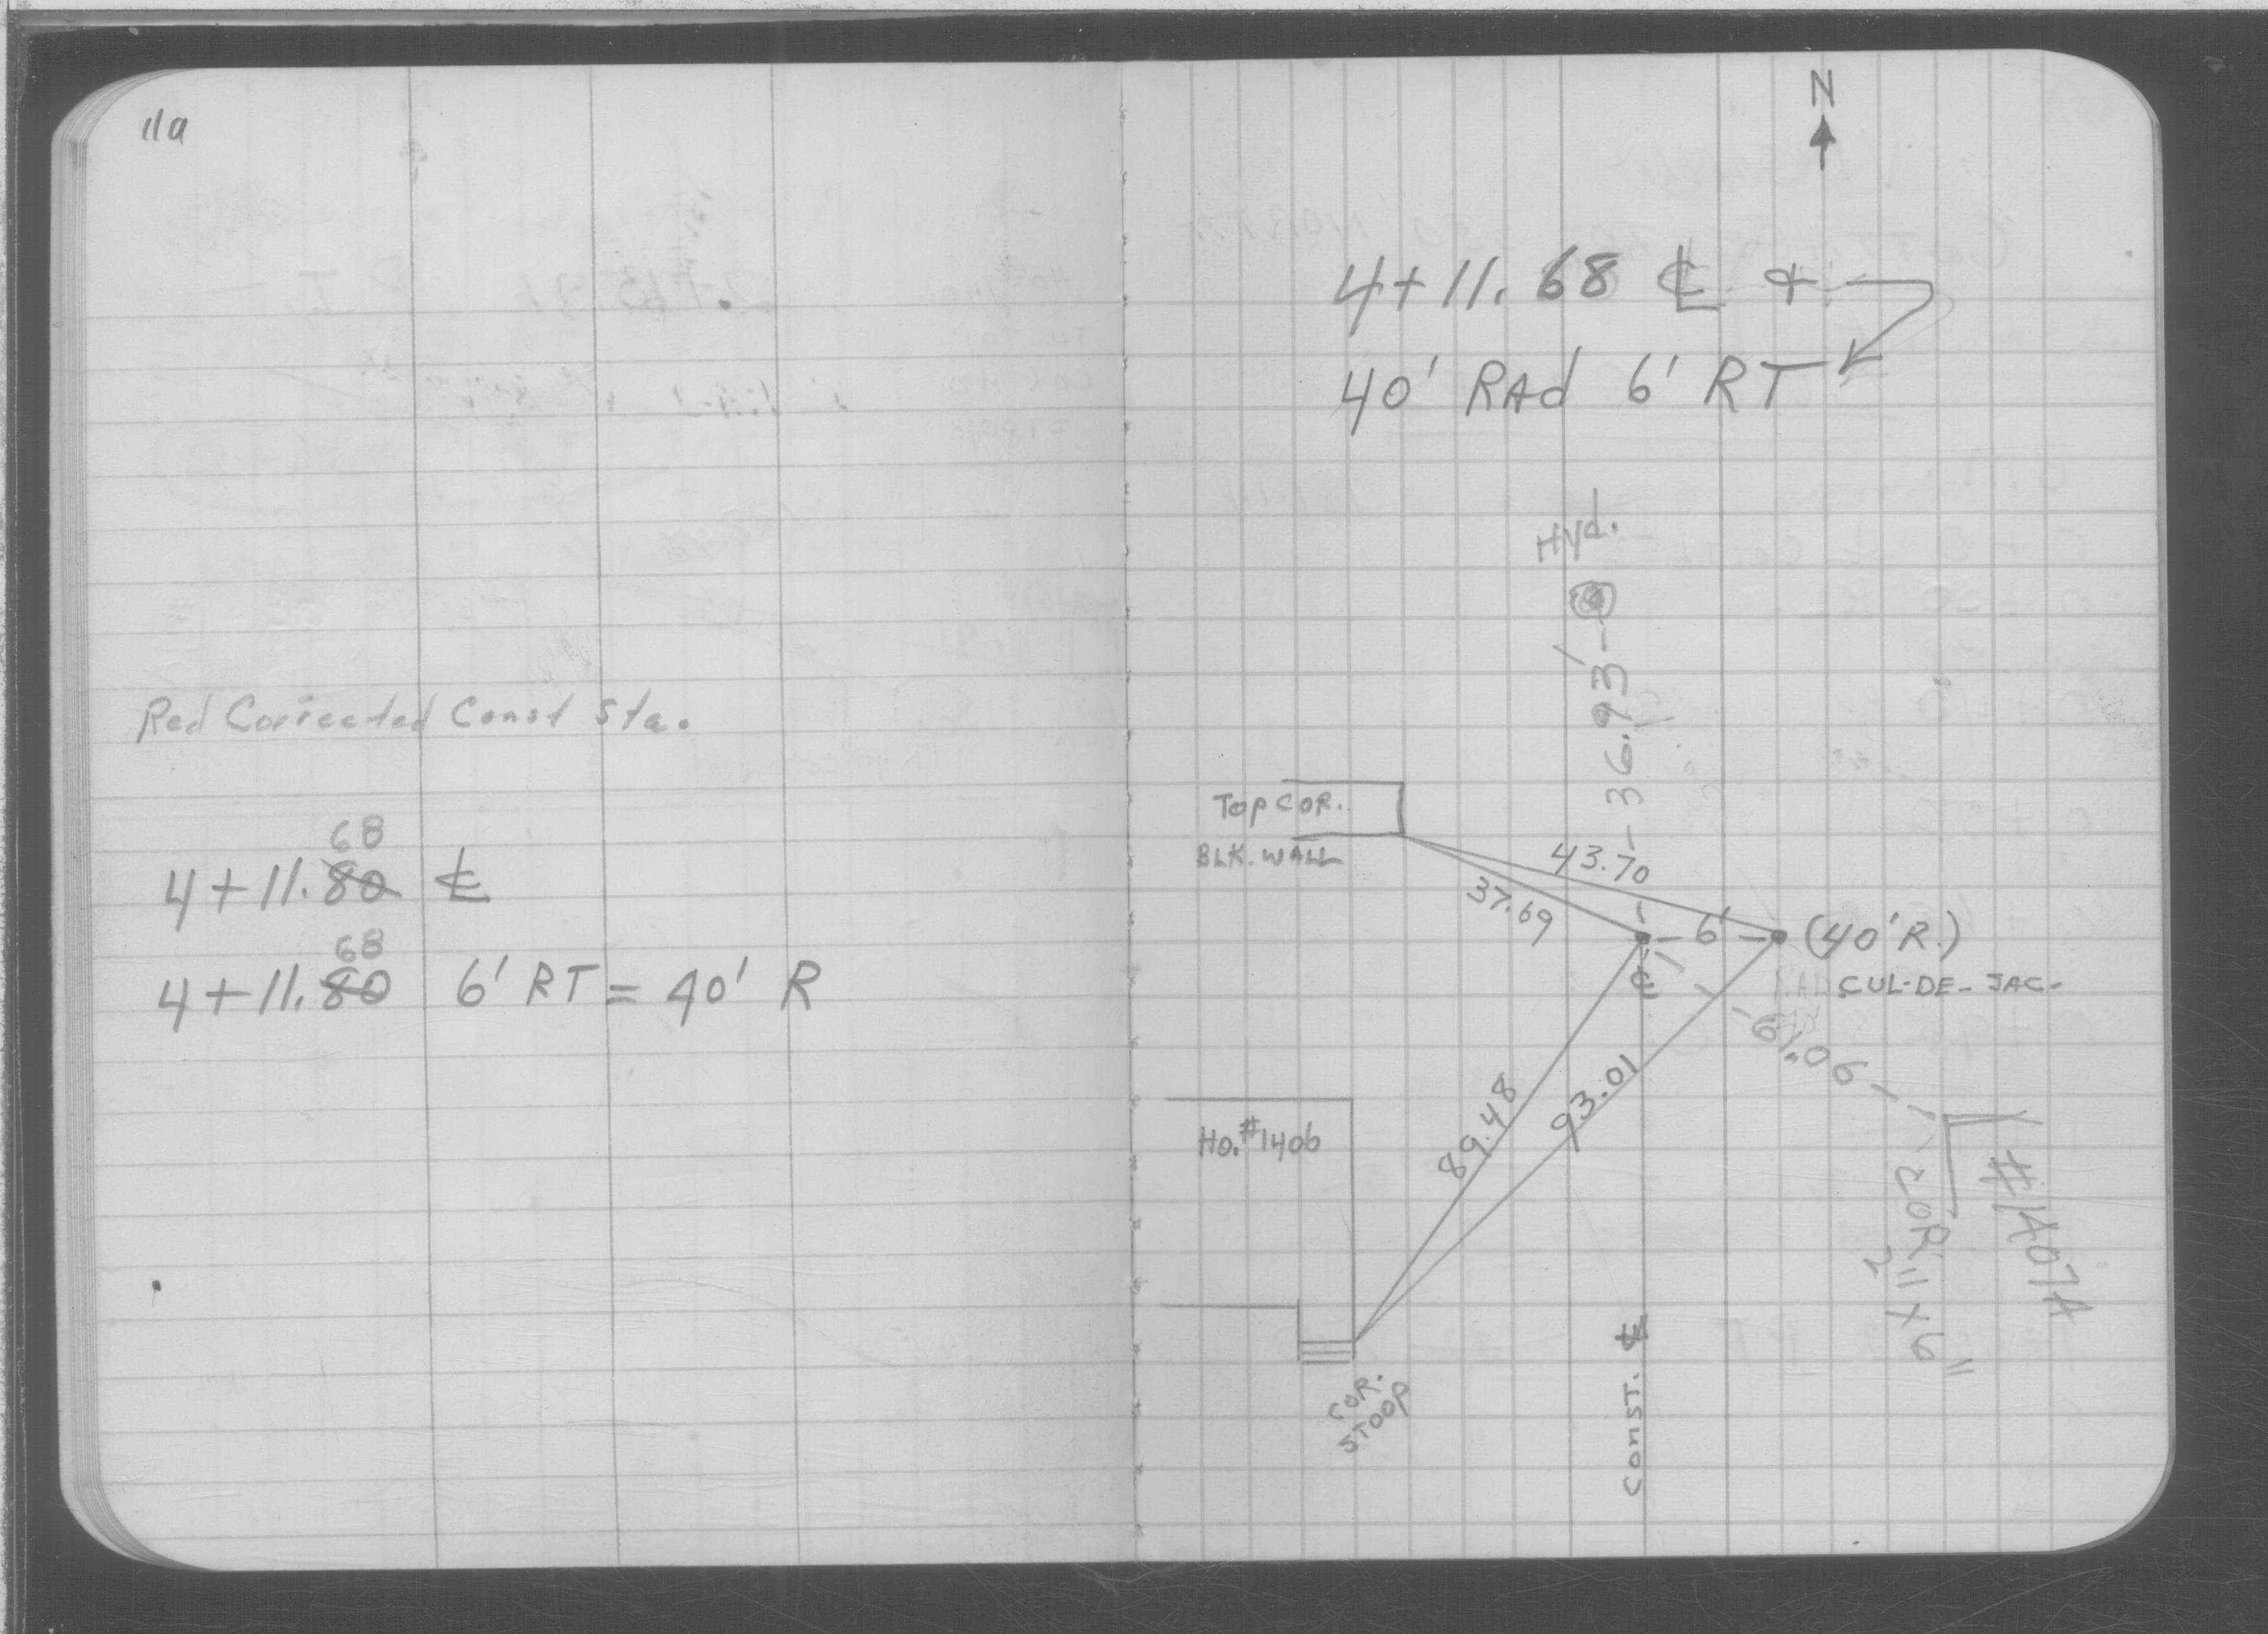 11a
Red Corrected Const Sta.
68
4+11.80 ℄
68
4+11.80 6' RT = 40' R
N
4+11.68 ℄ +
40' RAd 6' RT
Hyd.
36.93'
Top COR.
BLK. WALL
43.70
37.69
6'
(40' R.)
℄
CUL-DE-SAC-
61.06
89.48
93.01
Ho. #1406
#1407A
COR.
COR.
STOOP
CONST. ℄